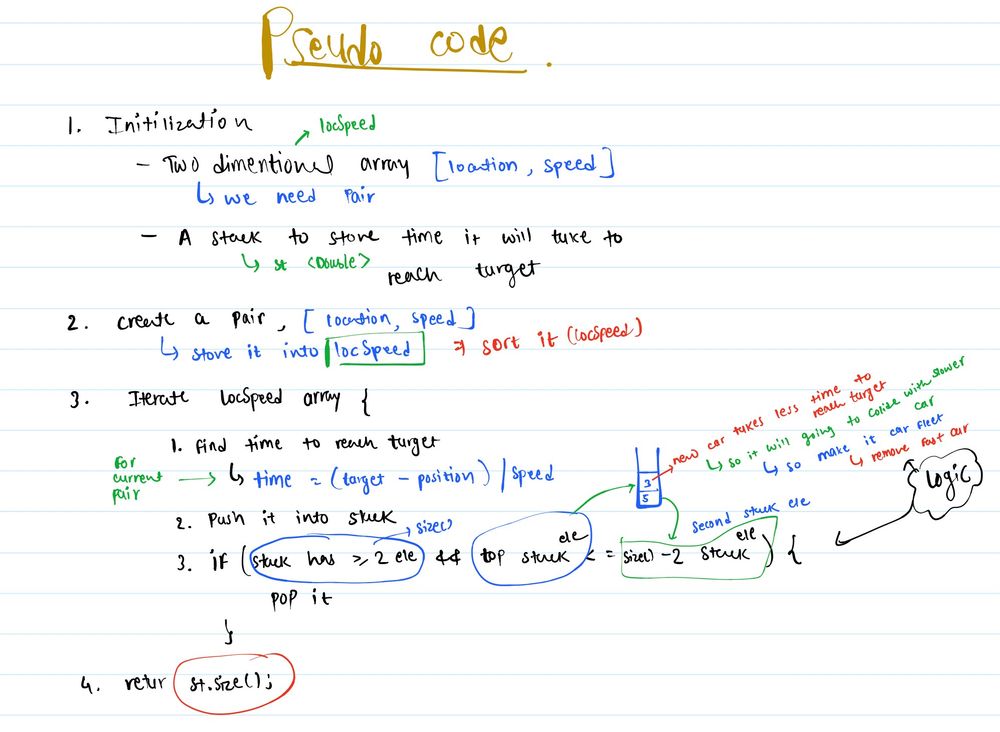 Pseudo code .
1. Initilization
locSpeed
- Two dimentional array [location, speed]
↳ we need pair
- A stack to store time it will take to
↳ st <Double>
reach target
2. create a pair, [location, speed]
↳ store it into locSpeed ⇒ sort it (locSpeed)
3. Iterate locSpeed array {
1. find time to reach target
For current pair → ↳ time = (target - position) / speed
2. Push it into stack
3. if (stack has >= 2 ele && top stack ele <= size() - 2 stack ele) {
size()
second stack ele
3
5
new car takes less time to reach target
↳ so it will going to colide with slower car
↳ so make it car fleet
↳ remove fast car
Logic
pop it
}
4. retur st.size();